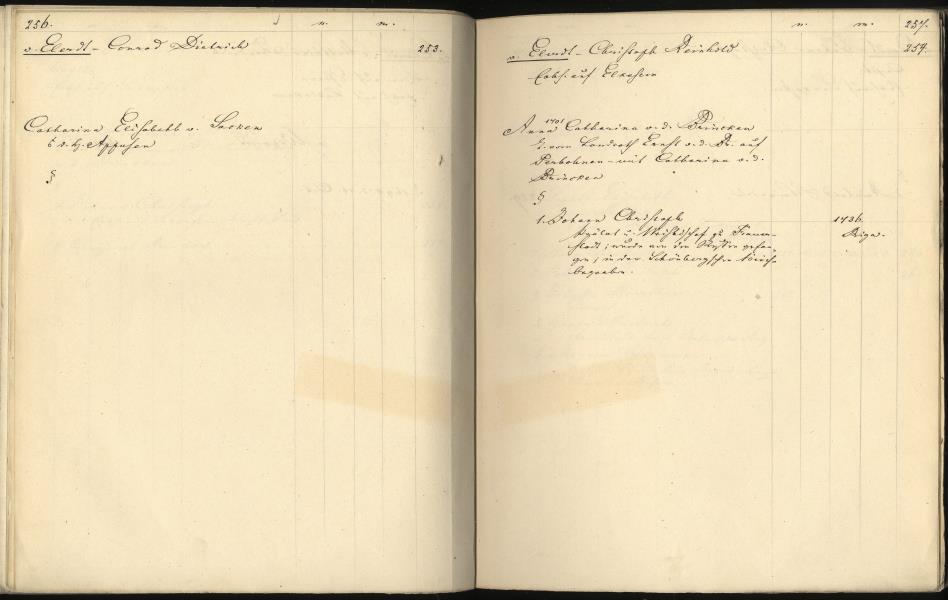 256.
n. m.
v. Elendt - Conrad Dietrich 253.
Catharina Elisabeth v. Sacken
a. d. H. Appusen
§
n. m. 257.
v. Elendt - Christoph Reinhold 254.
Erbh. auf Elkesem
1701
Anna Catharina v. d. Brincken
T. vom Landrath Ernst v. d. Br. auf
Perbohnen - mit Catharina v. d.
Brincken
§
1. Johann Christoph 1736.
Prälat u. Weihbischof zu Frauen- Riga.
stadt; wurde von den Russen gefan-
gen; in der Schönbergschen Kirche
begraben.